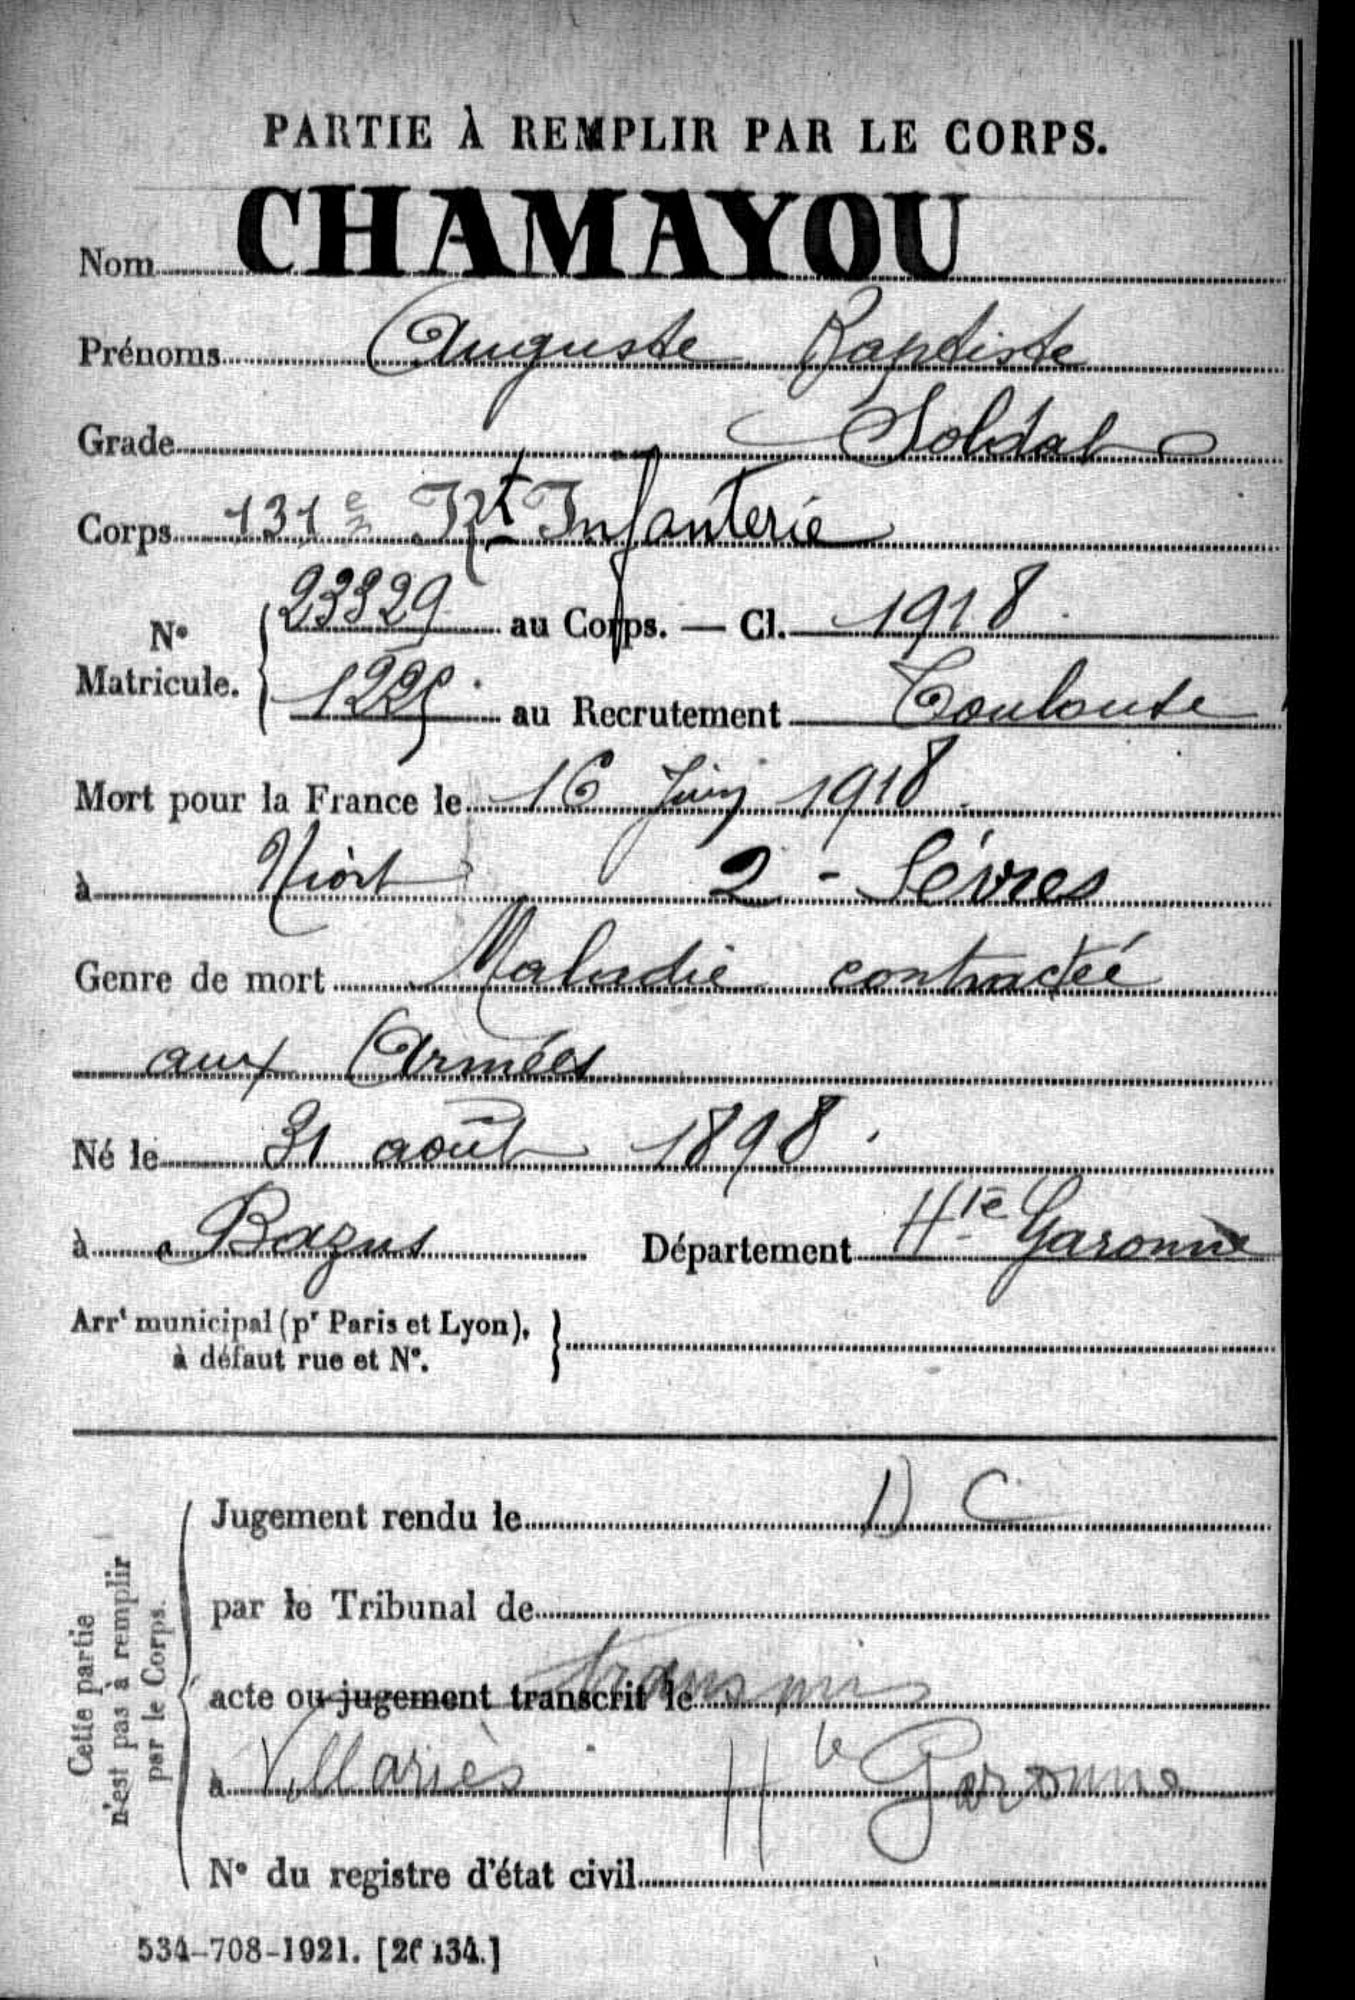 PARTIE À REMPLIR PAR LE CORPS.
Nom CHAMAYOU
Prénoms Auguste Baptiste
Grade Soldat
Corps 131e Rt Infanterie
No Matricule. { 23329 au Corps. — Cl. 1918
1225 au Recrutement Toulouse
Mort pour la France le 16 Juin 1918
à Niort 2 - Sèvres
Genre de mort Maladie contractée
aux Armées
Né le 31 août 1898.
à Bazus Département Hte Garonne
Arrt municipal (pr Paris et Lyon), }
à défaut rue et No.
Cette partie
n'est pas à remplir
par le Corps.
Jugement rendu le D C
par le Tribunal de
acte ou jugement transcrit le
à Villariès Hte Garonne
No du registre d'état civil
534-708-1921. [26134.]